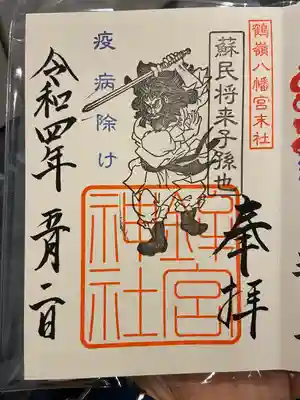 鶴嶺八幡宮末社
蘇民将来子孫也
奉拝
疫病除け
鉾宮
神社
令和四年五月二日